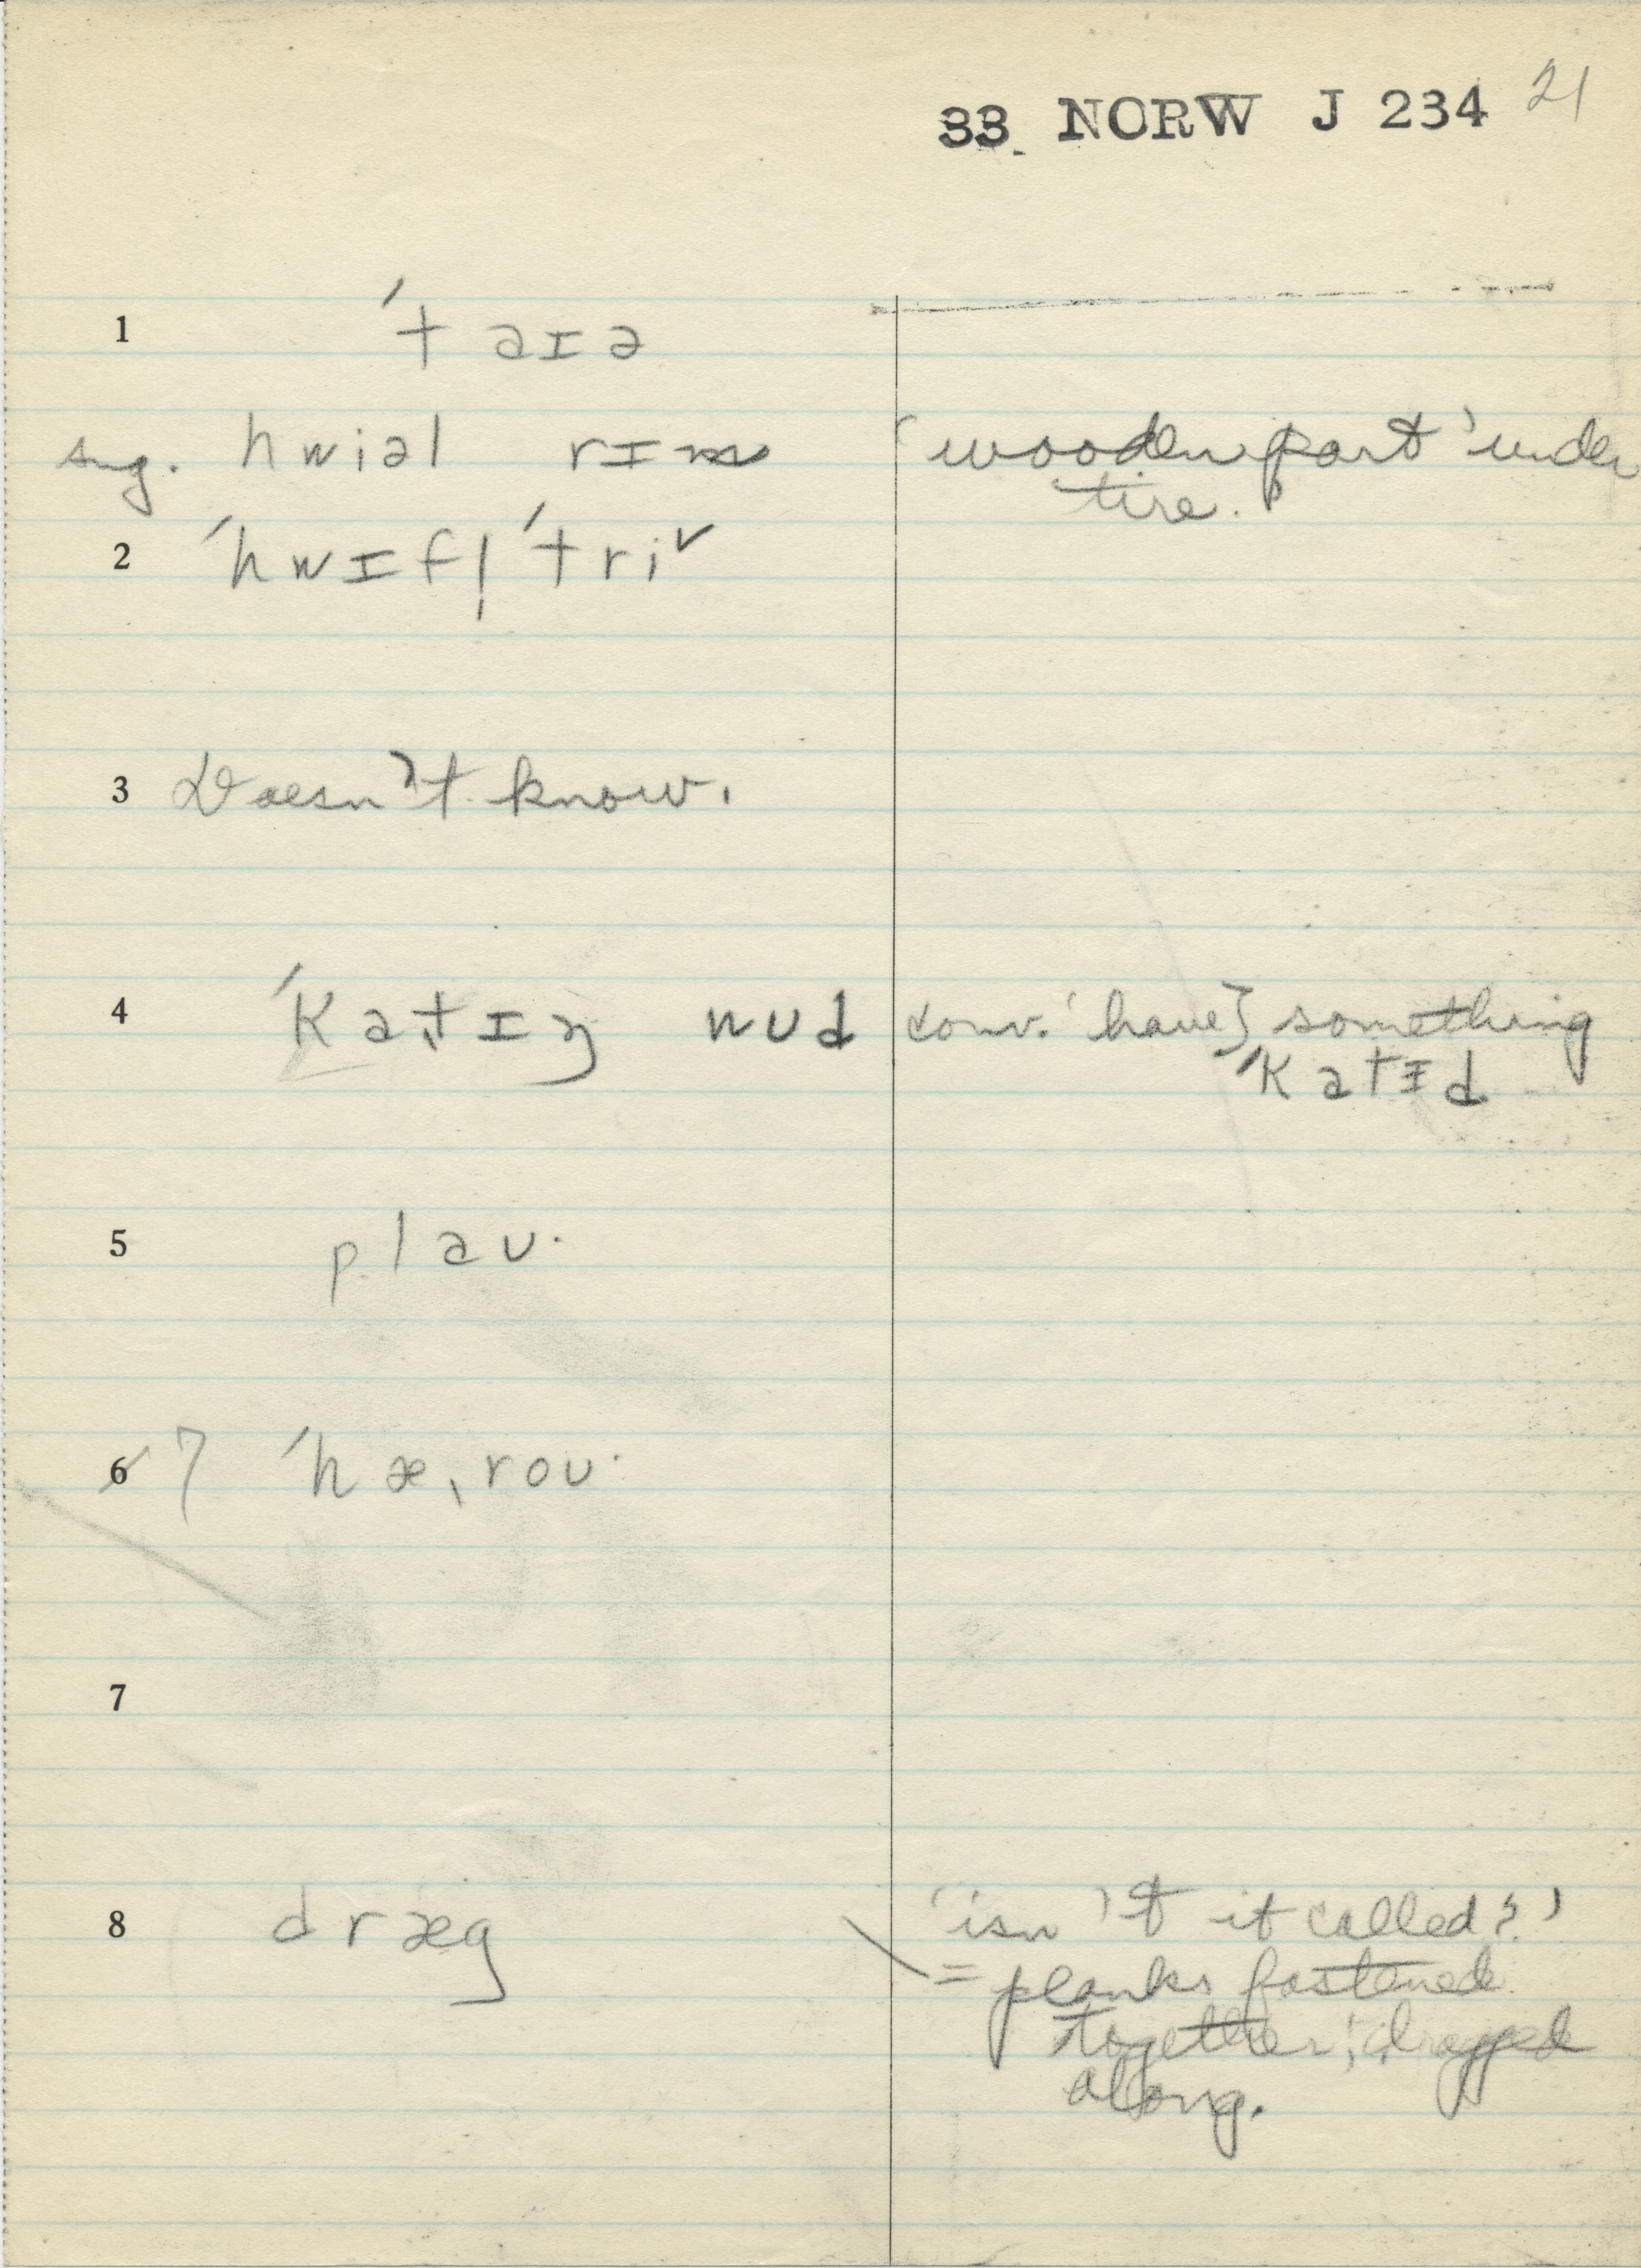 33 NORW J 234 21
1 ˈtaɪə
sug. hwiəl rɪm 'wooden part' under
tire.
2 ˈhwɪfl̩ˈtri˅
3 Doesn't know.
4 ˈkat̬ɪŋ wud conv. 'have] something
ˈkatɪd
5 plaʊ·
6 7 ˈhæˌroʊ·
7
8 dræg 'isn't it called?'
= planks fastened
together; dragged
along.